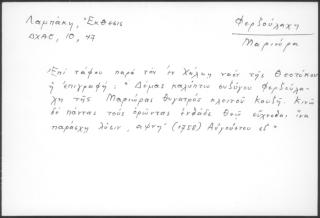 Λαμπάκη, Ἔκθεσις
ΔΧΑΕ, 10, 47
Φερδούλαχη
Μαριώρα
Ἐπί τάφου παρά τόν ἐν Χάλκῃ ναόν τῆς Θεοτόκου
ἡ ἐπιγραφή: "Δέμας καλύπτω συζύγου Φερδούλα-
χη τῆς Μαριώρας θυγατρός κλεινοῦ Κουβῆ. Κινῶ
δέ πάντας τούς ὁρῶντας ἐνθάδε Θεῷ εὔχεσθαι ἵνα
παράσχῃ λύσιν, αψνή (1758) Αὐγούστου